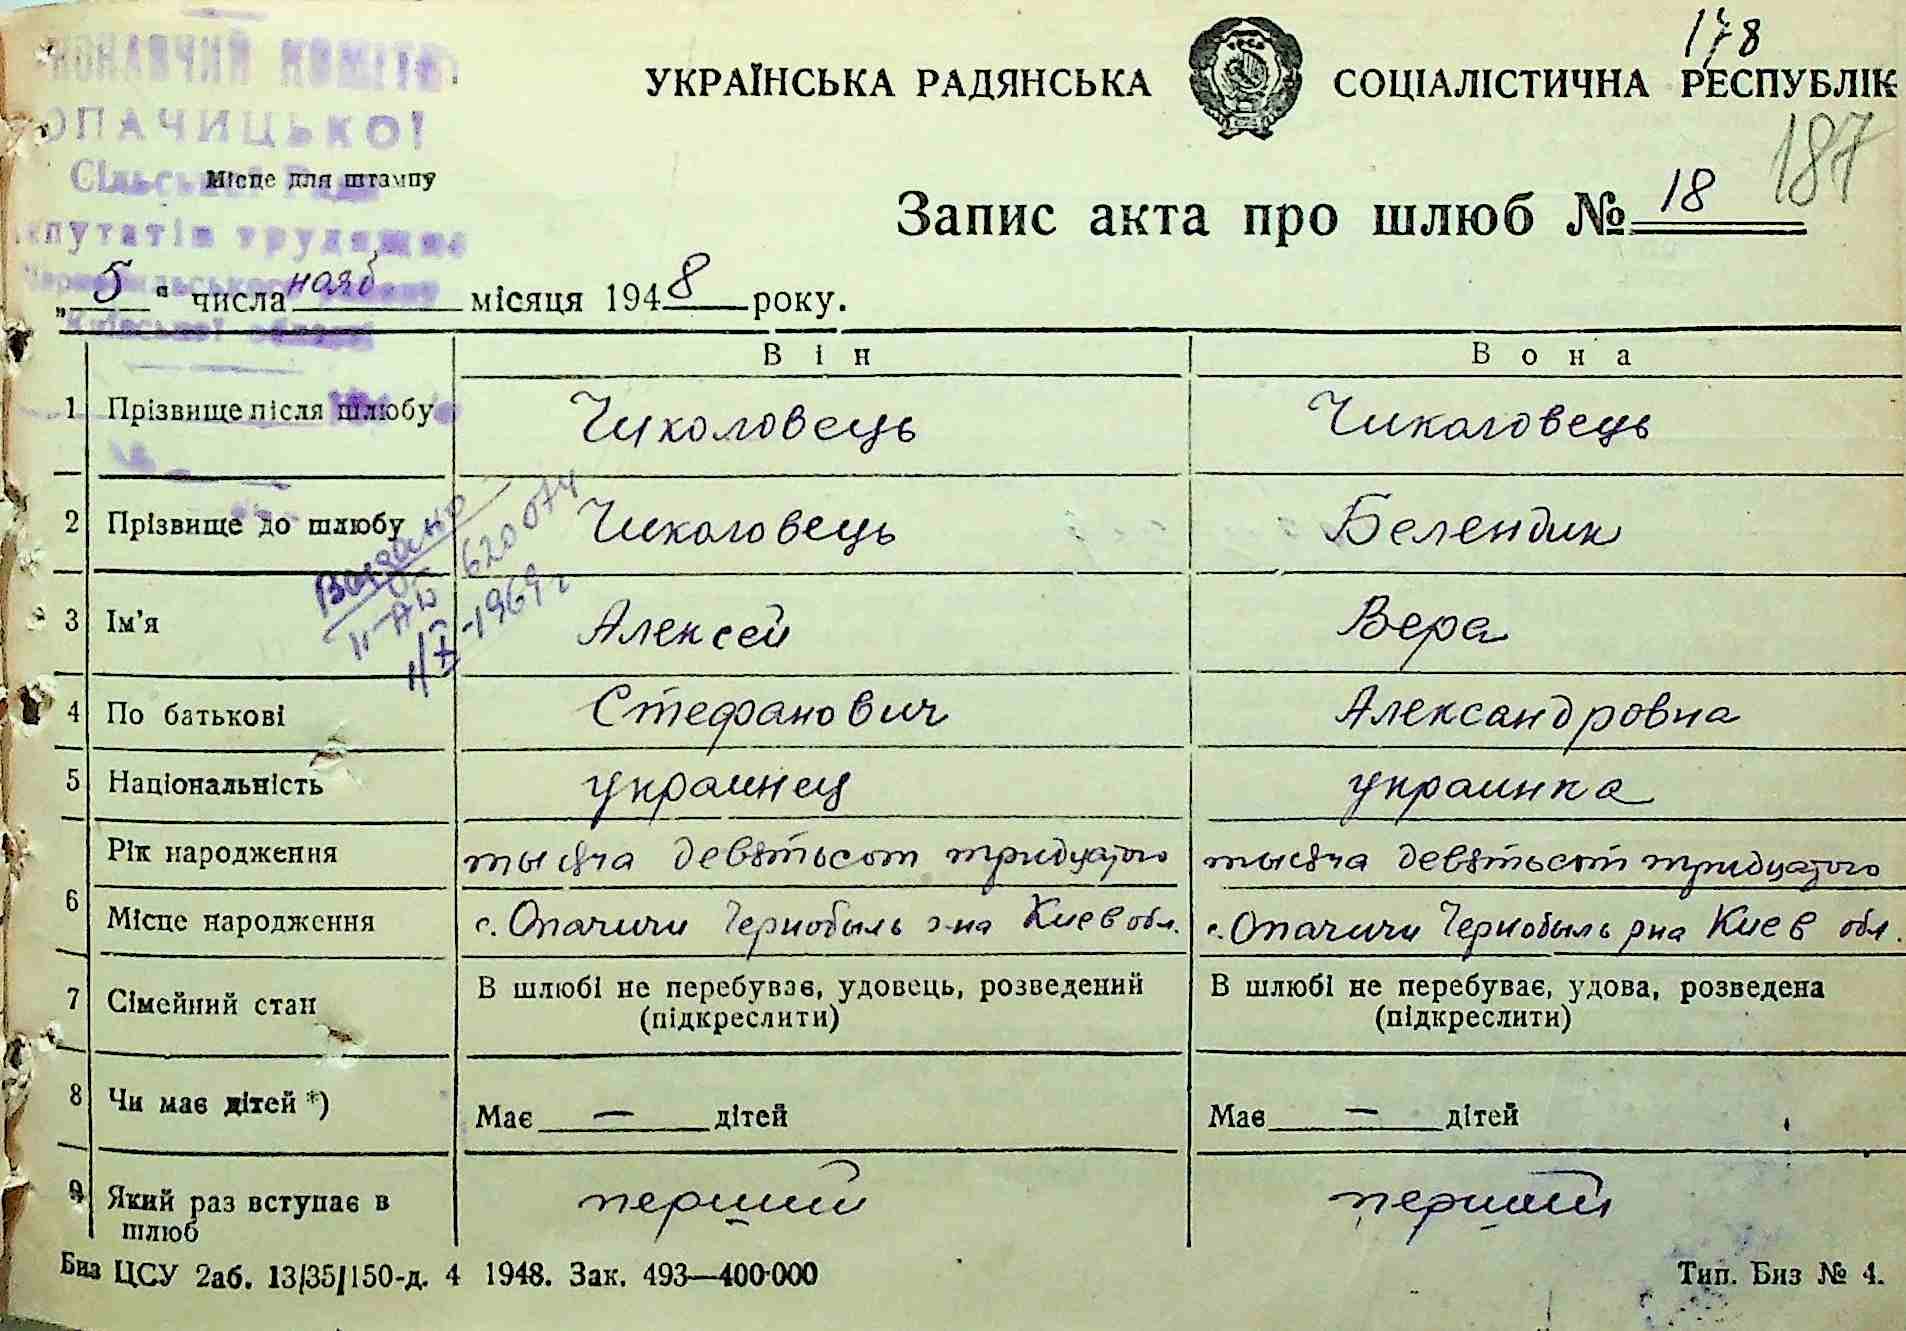 178
УКРАЇНСЬКА РАДЯНСЬКА СОЦІАЛІСТИЧНА РЕСПУБЛІК
187
ОНАВЧИЙ КОМІТЕ
ОПАЧИЦЬКОЇ
Сільської Ради
Місце для штампу
путатів трудящих
Київської області
Запис акта про шлюб № 18
„ 5 “ числа нояб місяця 1948 року.
Він Вона
1 Прізвище після шлюбу Чиколовець Чикаловець
2 Прізвище до шлюбу Чикаловець Белендик
620074
1969 г
3 Ім'я Алексей Вера
4 По батькові Стефанович Александровна
5 Національність украинец украинка
6 Рік народження тысяча девятьсот тридцатого тысяча девятьсот тридцатого
Місце народження с. Опачичи Чернобыль р-на Киев обл. с. Опачичи Чернобыль рна Киев обл.
7 Сімейний стан В шлюбі не перебуває, удовець, розведений В шлюбі не перебуває, удова, розведена
(підкреслити) (підкреслити)
8 Чи має дітей *) Має — дітей Має — дітей
9 Який раз вступає в шлюб перший перший
Биз ЦСУ 2аб. 13/35/150-д. 4 1948. Зак. 493—400·000 Тип. Биз № 4.